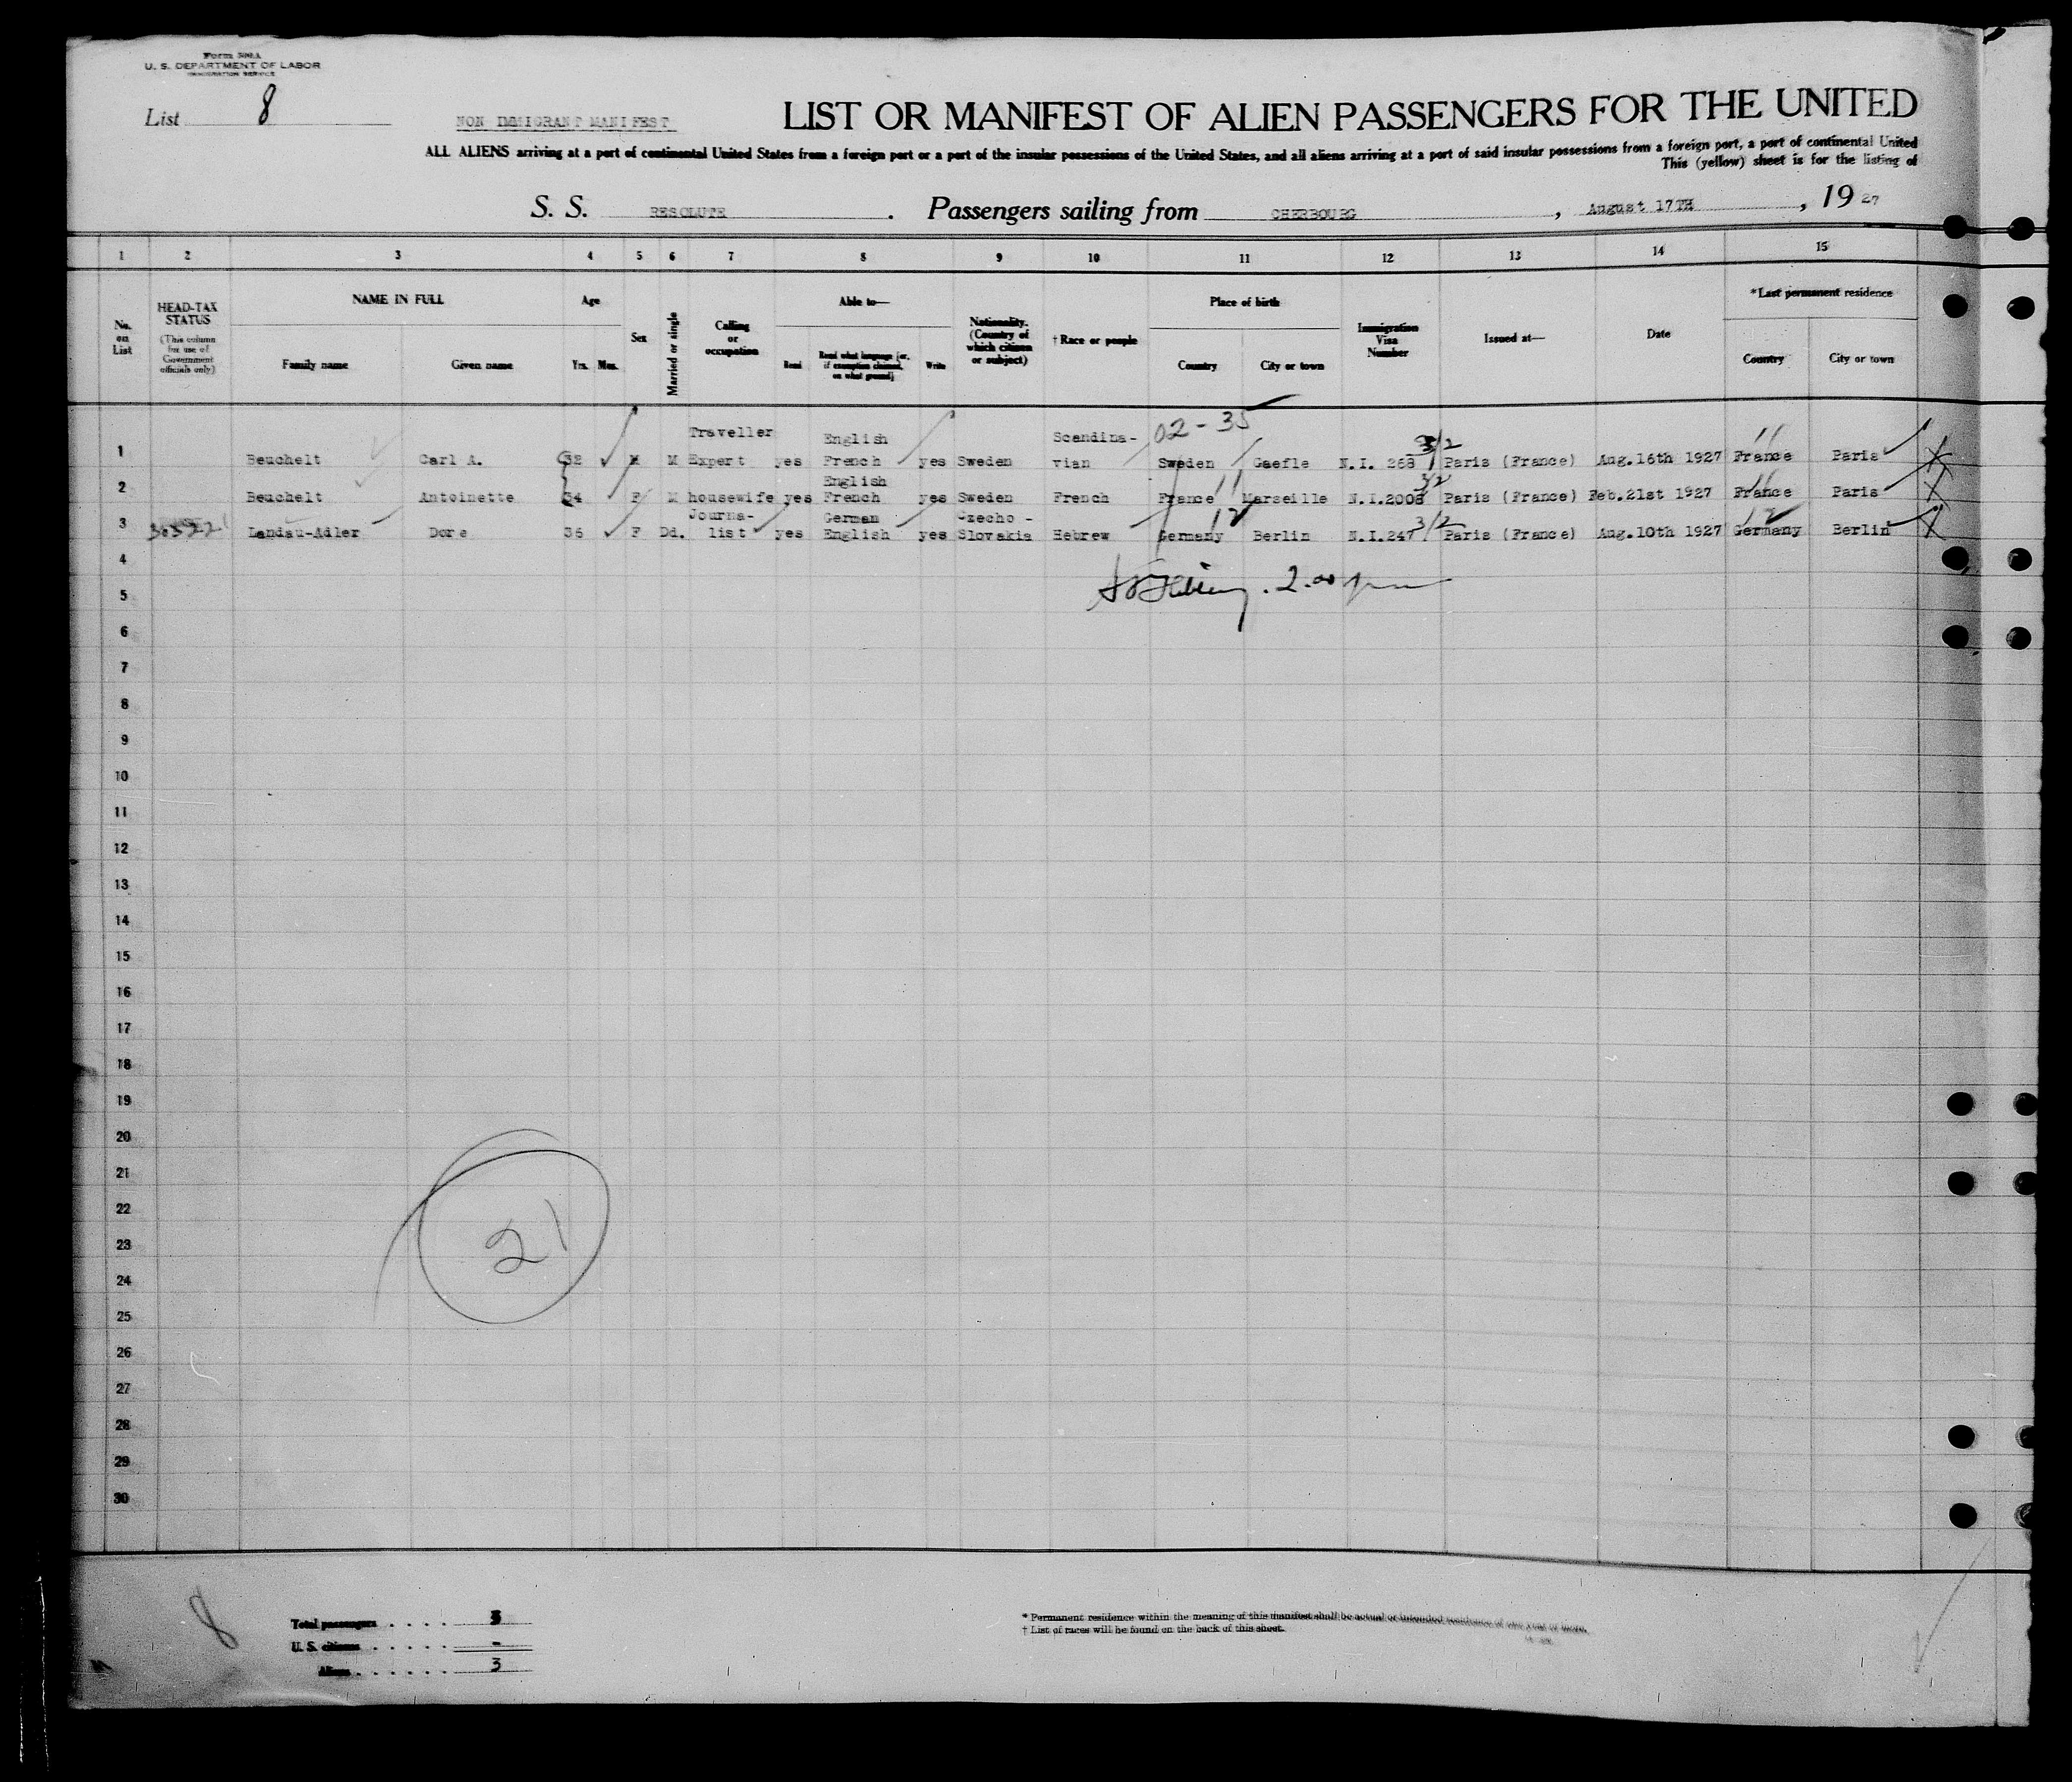 Form 500A
U. S. DEPARTMENT OF LABOR
IMMIGRATION SERVICE
List 8
NON IMMIGRANT MANIFEST
LIST OR MANIFEST OF ALIEN PASSENGERS FOR THE UNITED
ALL ALIENS arriving at a port of continental United States from a foreign port or a port of the insular possessions of the United States, and all aliens arriving at a port of said insular possessions from a foreign port, a port of continental United
This (yellow) sheet is for the listing of
S. S. RESOLUTE . Passengers sailing from CHERBOURG , August 17TH , 19 27
1 2 3 4 5 6 7 8 9 10 11 12 13 14 15
No. on List
HEAD-TAX STATUS
(This column for use of Government officials only)
NAME IN FULL
Family name Given name
Age
Yrs. Mos.
Sex
Married or single
Calling or occupation
Able to—
Read Read what language [or, if exemption claimed, on what ground] Write
Nationality. (Country of which citizen or subject)
† Race or people
Place of birth
Country City or town
Immigration Visa Number
Issued at—
Date
*Last permanent residence
Country City or town
02-35
1 Beuchelt Carl A. 32 M M Traveller Expert yes English French yes Sweden Scandina-vian Sweden Gaefle N.I. 268 3/2 Paris (France) Aug.16th 1927 France 11 Paris
2 Beuchelt Antoinette 34 F M housewife yes English French yes Sweden French France 11 Marseille N.I.2008 3/2 Paris (France) Feb.21st 1927 France 11 Paris
3 Landau-Adler Dore 36 F Dd. Journa-list yes German English yes Czecho-Slovakia Hebrew Germany 12 Berlin N.I.247 3/2 Paris (France) Aug.10th 1927 Germany 12 Berlin
4
2.00 pm
5
6
7
8
9
10
11
12
13
14
15
16
17
18
19
20
21
22
21
23
24
25
26
27
28
29
30
8
Total passengers . . . . 3
U. S. citizens . . . . . -
Aliens . . . . . . 3
* Permanent residence within the meaning of this manifest shall be actual or intended residence of one year or more.
† List of races will be found on the back of this sheet.